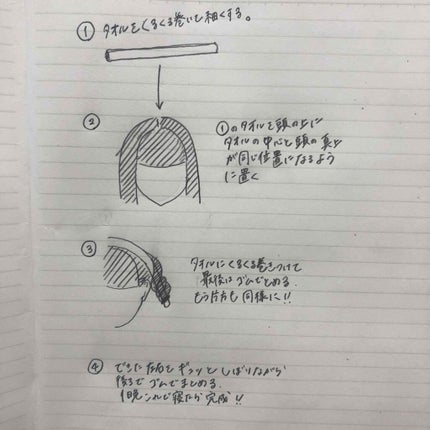 ① タオルをくるくる巻いて細くする。
②
①のタオルを頭の上に
タオルの中心と頭の真上
が同じ位置になるよう
に置く
③
タオルにくるくる巻きつけて
最後はゴムでとめる.
もう片方も同様に!!
④ できた
をギュッとしばりながら
後ろでゴムでまとめる.
1晩
寝たら完成!!